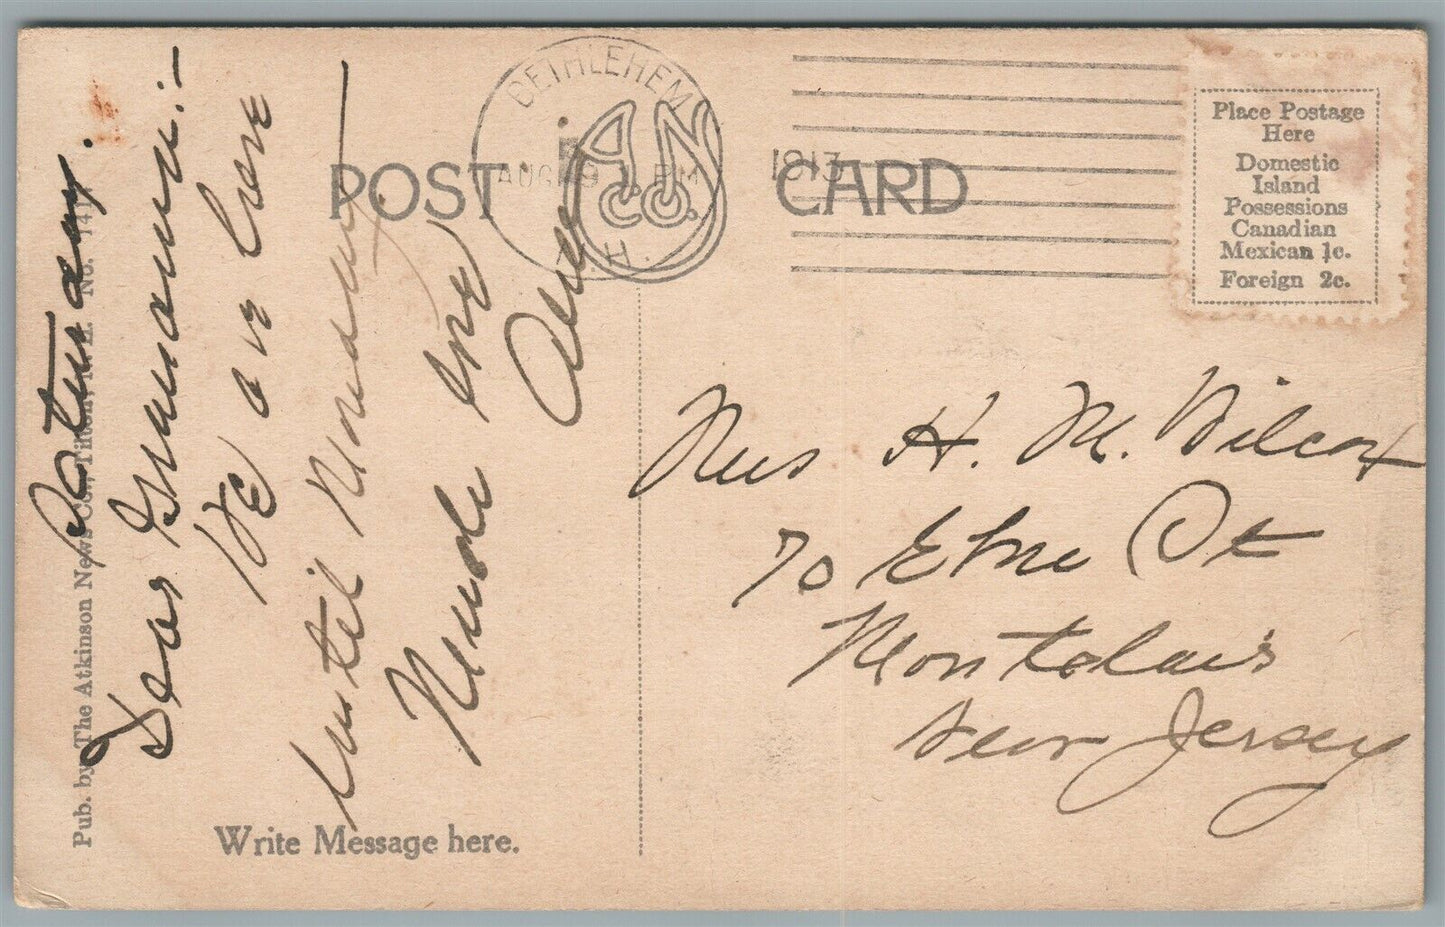 POST CARD
A.N. Co.
BETHLEHEM
AUG 9
PM
1913
N.H.
Place Postage
Here
Domestic
Island
Possessions
Canadian
Mexican 1c.
Foreign 2c.
Pub. by The Atkinson News Co., Tilton, N. H. No.
Saturday.
Dear Grandma:-
We are here
until Monday
Much love
Anne
Write Message here.
Mrs H. M. Wilcox
70 Elm St
Montclair
New Jersey